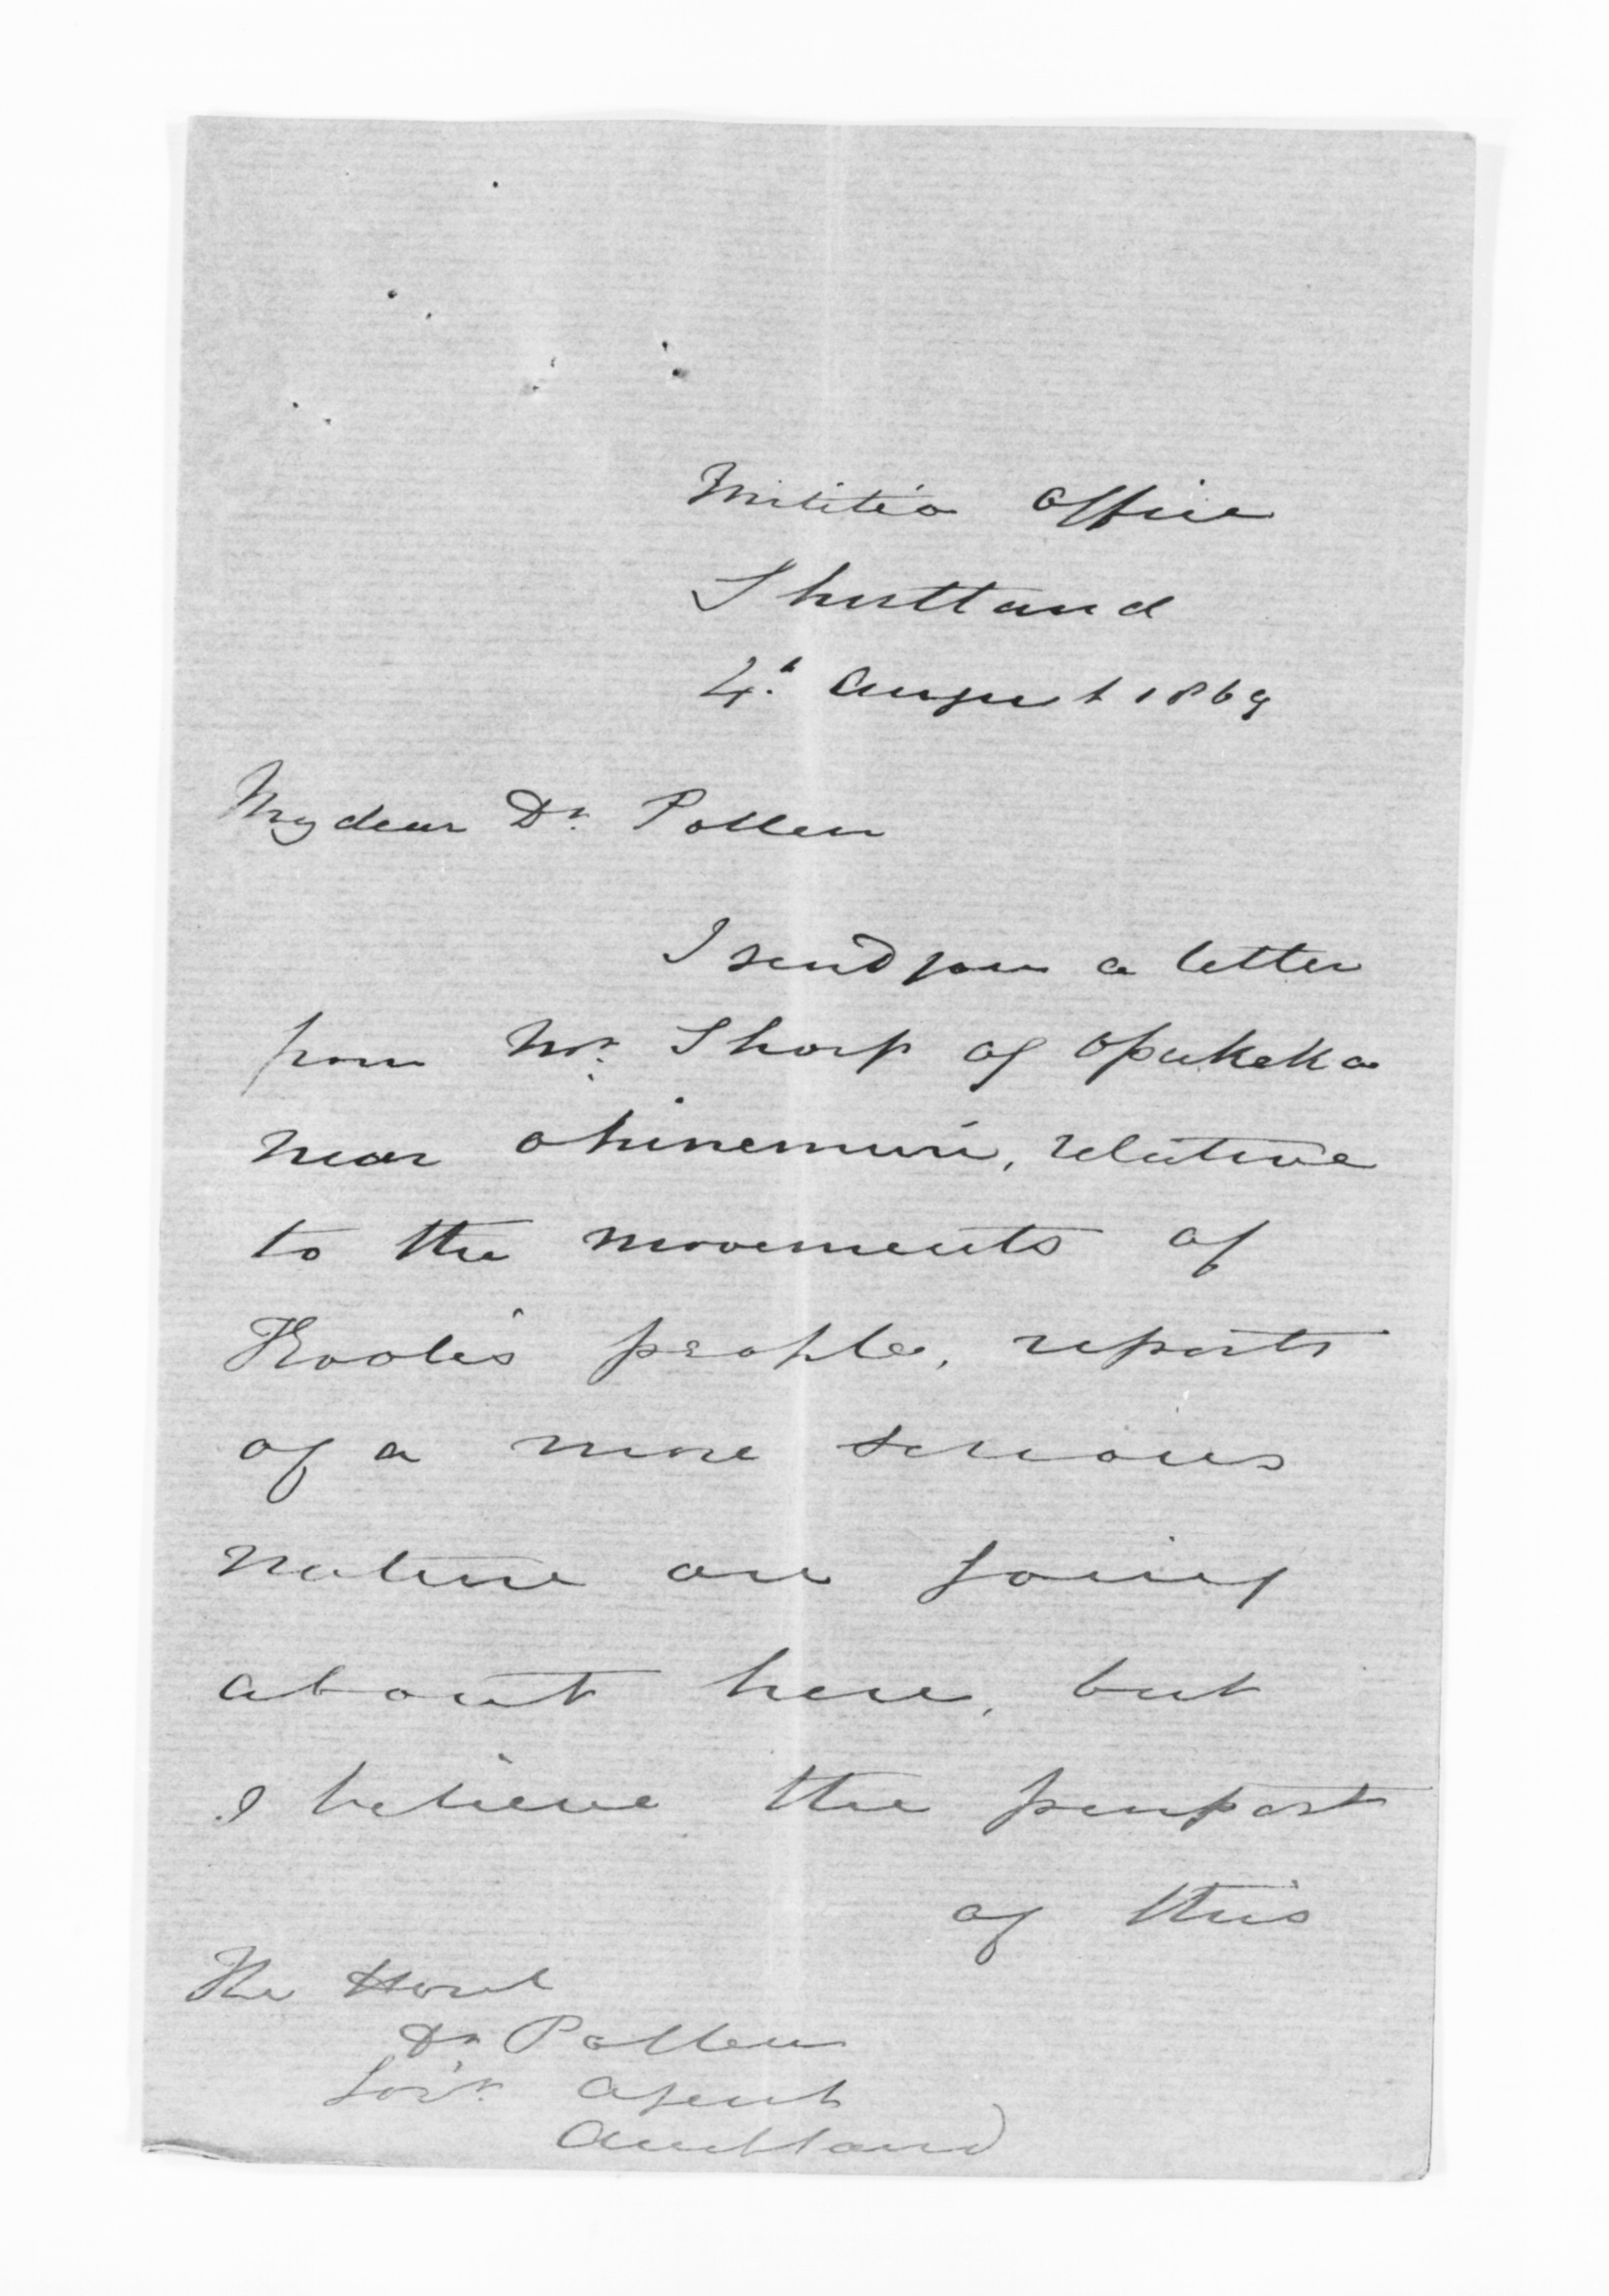 Militia Office
Shortland
4th August 1869
My dear Dr. Pollen
I send you a letter
from Mr. Thorp of Opukeka
near Ohinemuri, relative
to the movements of
Kooti's people, reports
of a more serious
nature are going
about here, but
I believe the purport
of this
The Honl
Dr Pollen
Govt. Agent
Auckland